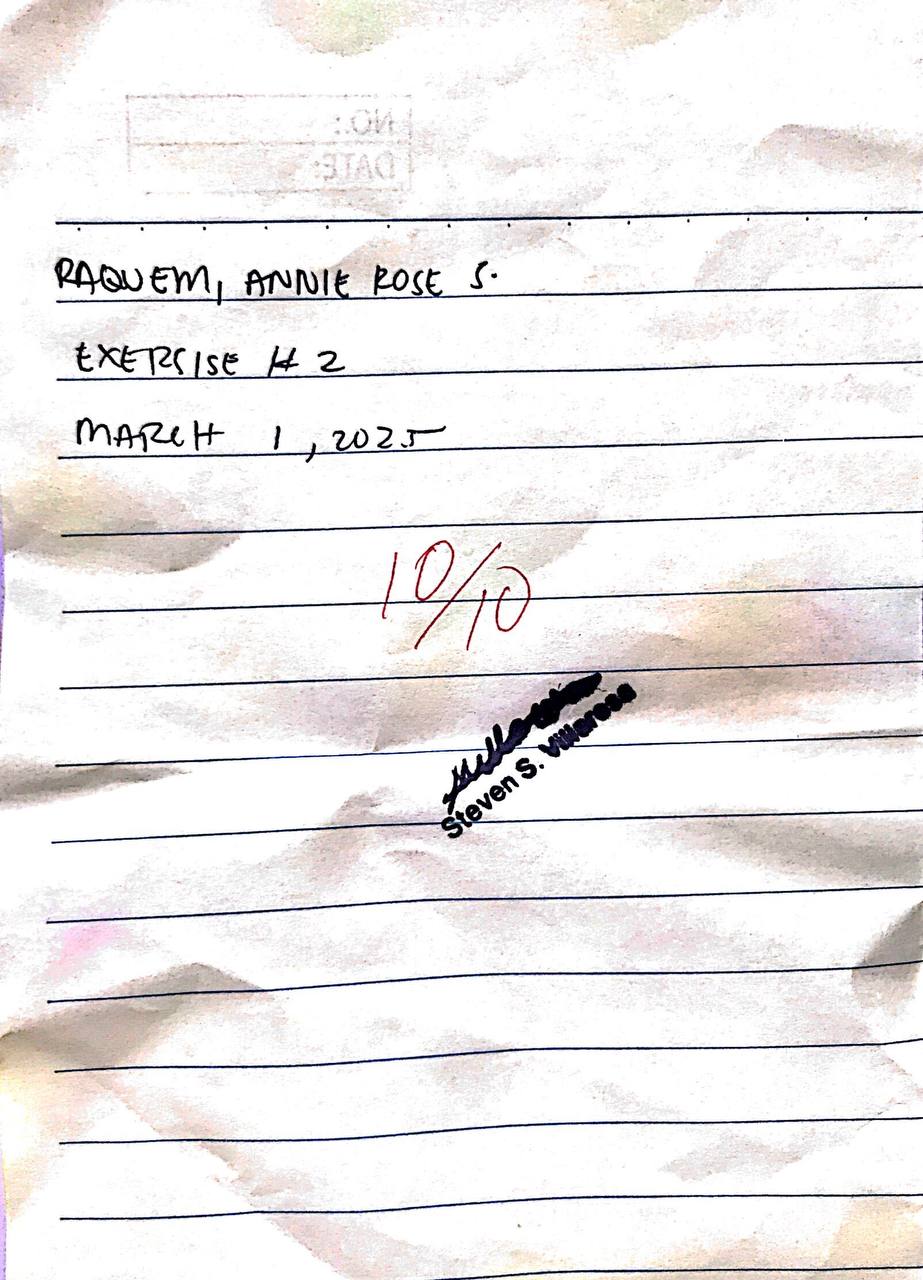 NO.:
DATE:
RAQUEM, ANNIE ROSE S.
EXERCISE # 2
MARCH 1, 2025
10/10
Steven S. Villarosa